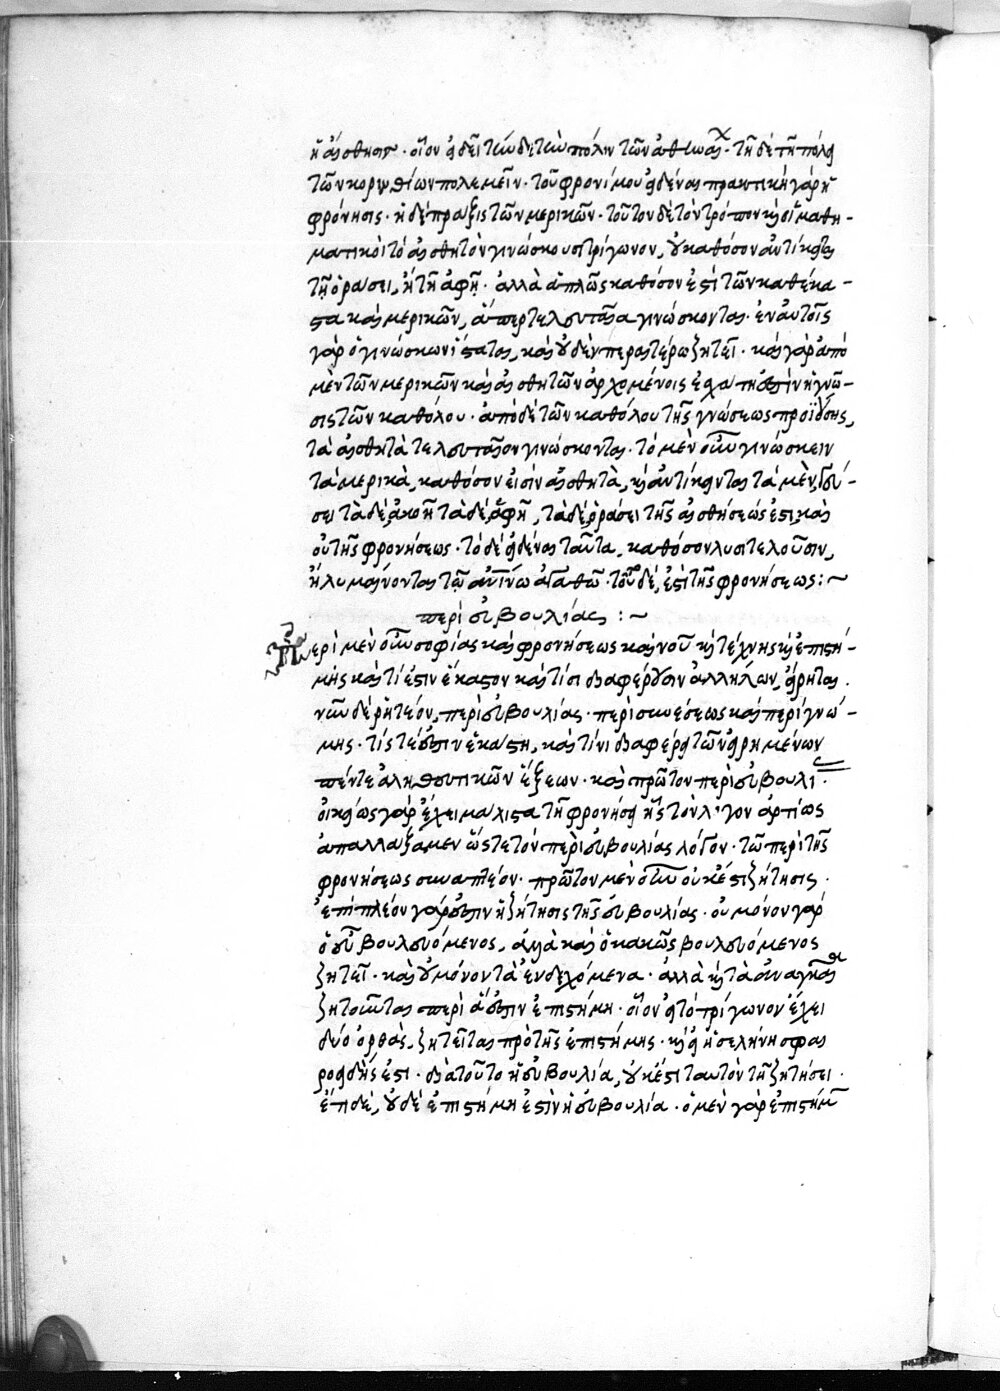 ἡ αἴσθησις· οἷον εἰ δεῖ τήνδε τὴν πόλιν τῶν ἀθηναίων· τῇδε τῇ πόλει
τῶν κορινθίων πολεμεῖν· τοῦ φρονίμου εἰδέναι πρακτικὴ γὰρ ἡ
φρόνησις· ἡ δὲ πρᾶξις τῶν μερικῶν· τοῦτον δὲ τὸν τρόπον καὶ οἱ μαθη-
ματικοὶ τὸ αἰσθητὸν γινώσκουσι τρίγωνον, οὐ καθόσον ἀντίκειται
τῇ ὁράσει, ἢ τῇ ἁφῇ· ἀλλὰ ἁπλῶς καθόσον ἐστὶ τῶν καθέκα-
στα καὶ μερικῶν, ἅπερ τελευταῖα γινώσκονται· ἐν αὐτοῖς
γὰρ ὁ γινώσκων ἵσταται, καὶ οὐδὲν περαιτέρω ζητεῖ· καὶ γὰρ ἀπὸ
μὲν τῶν μερικῶν καὶ αἰσθητῶν ἀρχομένοις ἐσχάτη ἐστὶν ἡ γνῶ-
σις τῶν καθόλου· ἀπὸ δὲ τῶν καθόλου τῆς γνώσεως προϊούσης,
τὰ αἰσθητὰ τελευταῖον γινώσκονται· τὸ μὲν οὖν γινώσκειν
τὰ μερικὰ, καθόσον εἰσὶν αἰσθητὰ, καὶ ἀντίκεινται τὰ μὲν, γεύ-
σει τὰ δὲ, ἀκοῇ τὰ δὲ, ἁφῇ, τὰ δὲ, ὁράσει τῆς αἰσθήσεώς ἐστι, καὶ
οὐ τῆς φρονήσεως· τὸ δὲ εἰδέναι ταῦτα, καθόσον λυσιτελοῦσιν,
ἢ λυμαίνονται τῷ ἀνίνω ἀγαθῷ· τοῦτο δέ, ἐστι τῆς φρονήσεως:~
περὶ εὐβουλίας:~
Περὶ μὲν οὖν σοφίας καὶ φρονήσεως καὶ νοῦ καὶ τέχνης καὶ ἐπιστή-
μης καὶ τί ἐστιν ἕκαστον καὶ τίσι διαφέρουσιν ἀλλήλων, εἴρηται.
νῦν δὲ ῥητέον, περὶ εὐβουλίας· περὶ συνέσεως καὶ περὶ γνώ-
μης· τίς τέ ἐστιν ἑκάστη, καὶ τίνι διαφέρει τῶν εἰρημένων
πέντε ἀληθευτικῶν ἕξεων· καὶ πρῶτον περὶ εὐβουλί·
οἰκείως γὰρ ἔχει μάλιστα τῇ φρονήσει ἧς τὸν λόγον ἀρτίως
ἀπαλλάξαμεν ὥστε τὸν περὶ εὐβουλίας λόγον· τῷ περὶ τῆς
φρονήσεως συναπτέον· πρῶτον μὲν οὖν οὐκ ἔστι ζήτησις·
ἐπὶ πλέον γάρ ἐστιν ἡ ζήτησις τῆς εὐβουλίας· οὐ μόνον γὰρ
ὁ εὖ βουλευόμενος, ἀλλὰ καὶ ὁ κακῶς βουλευόμενος
ζητεῖ· καὶ οὐ μόνον τὰ ἐνδεχόμενα· ἀλλὰ καὶ τὰ ἀναγκαῖα
ζητοῦνται περὶ ἅ ἐστιν ἐπιστήμη· οἷον εἰ τὸ τρίγωνον ἔχει
δύο ὀρθὰς, ζητεῖται πρὸ τῆς ἐπιστήμης· καὶ εἰ ἡ σελήνη σφαι
ροειδής ἐστι· διὰ τοῦτο ἡ εὐβουλία, οὐκ ἔστι ταυτὸν τῇ ζητήσει·
ἔτι δέ, οὐδὲ ἐπιστήμη ἐστὶν ἡ εὐβουλία· ὁ μὲν γὰρ ἐπιστήμ